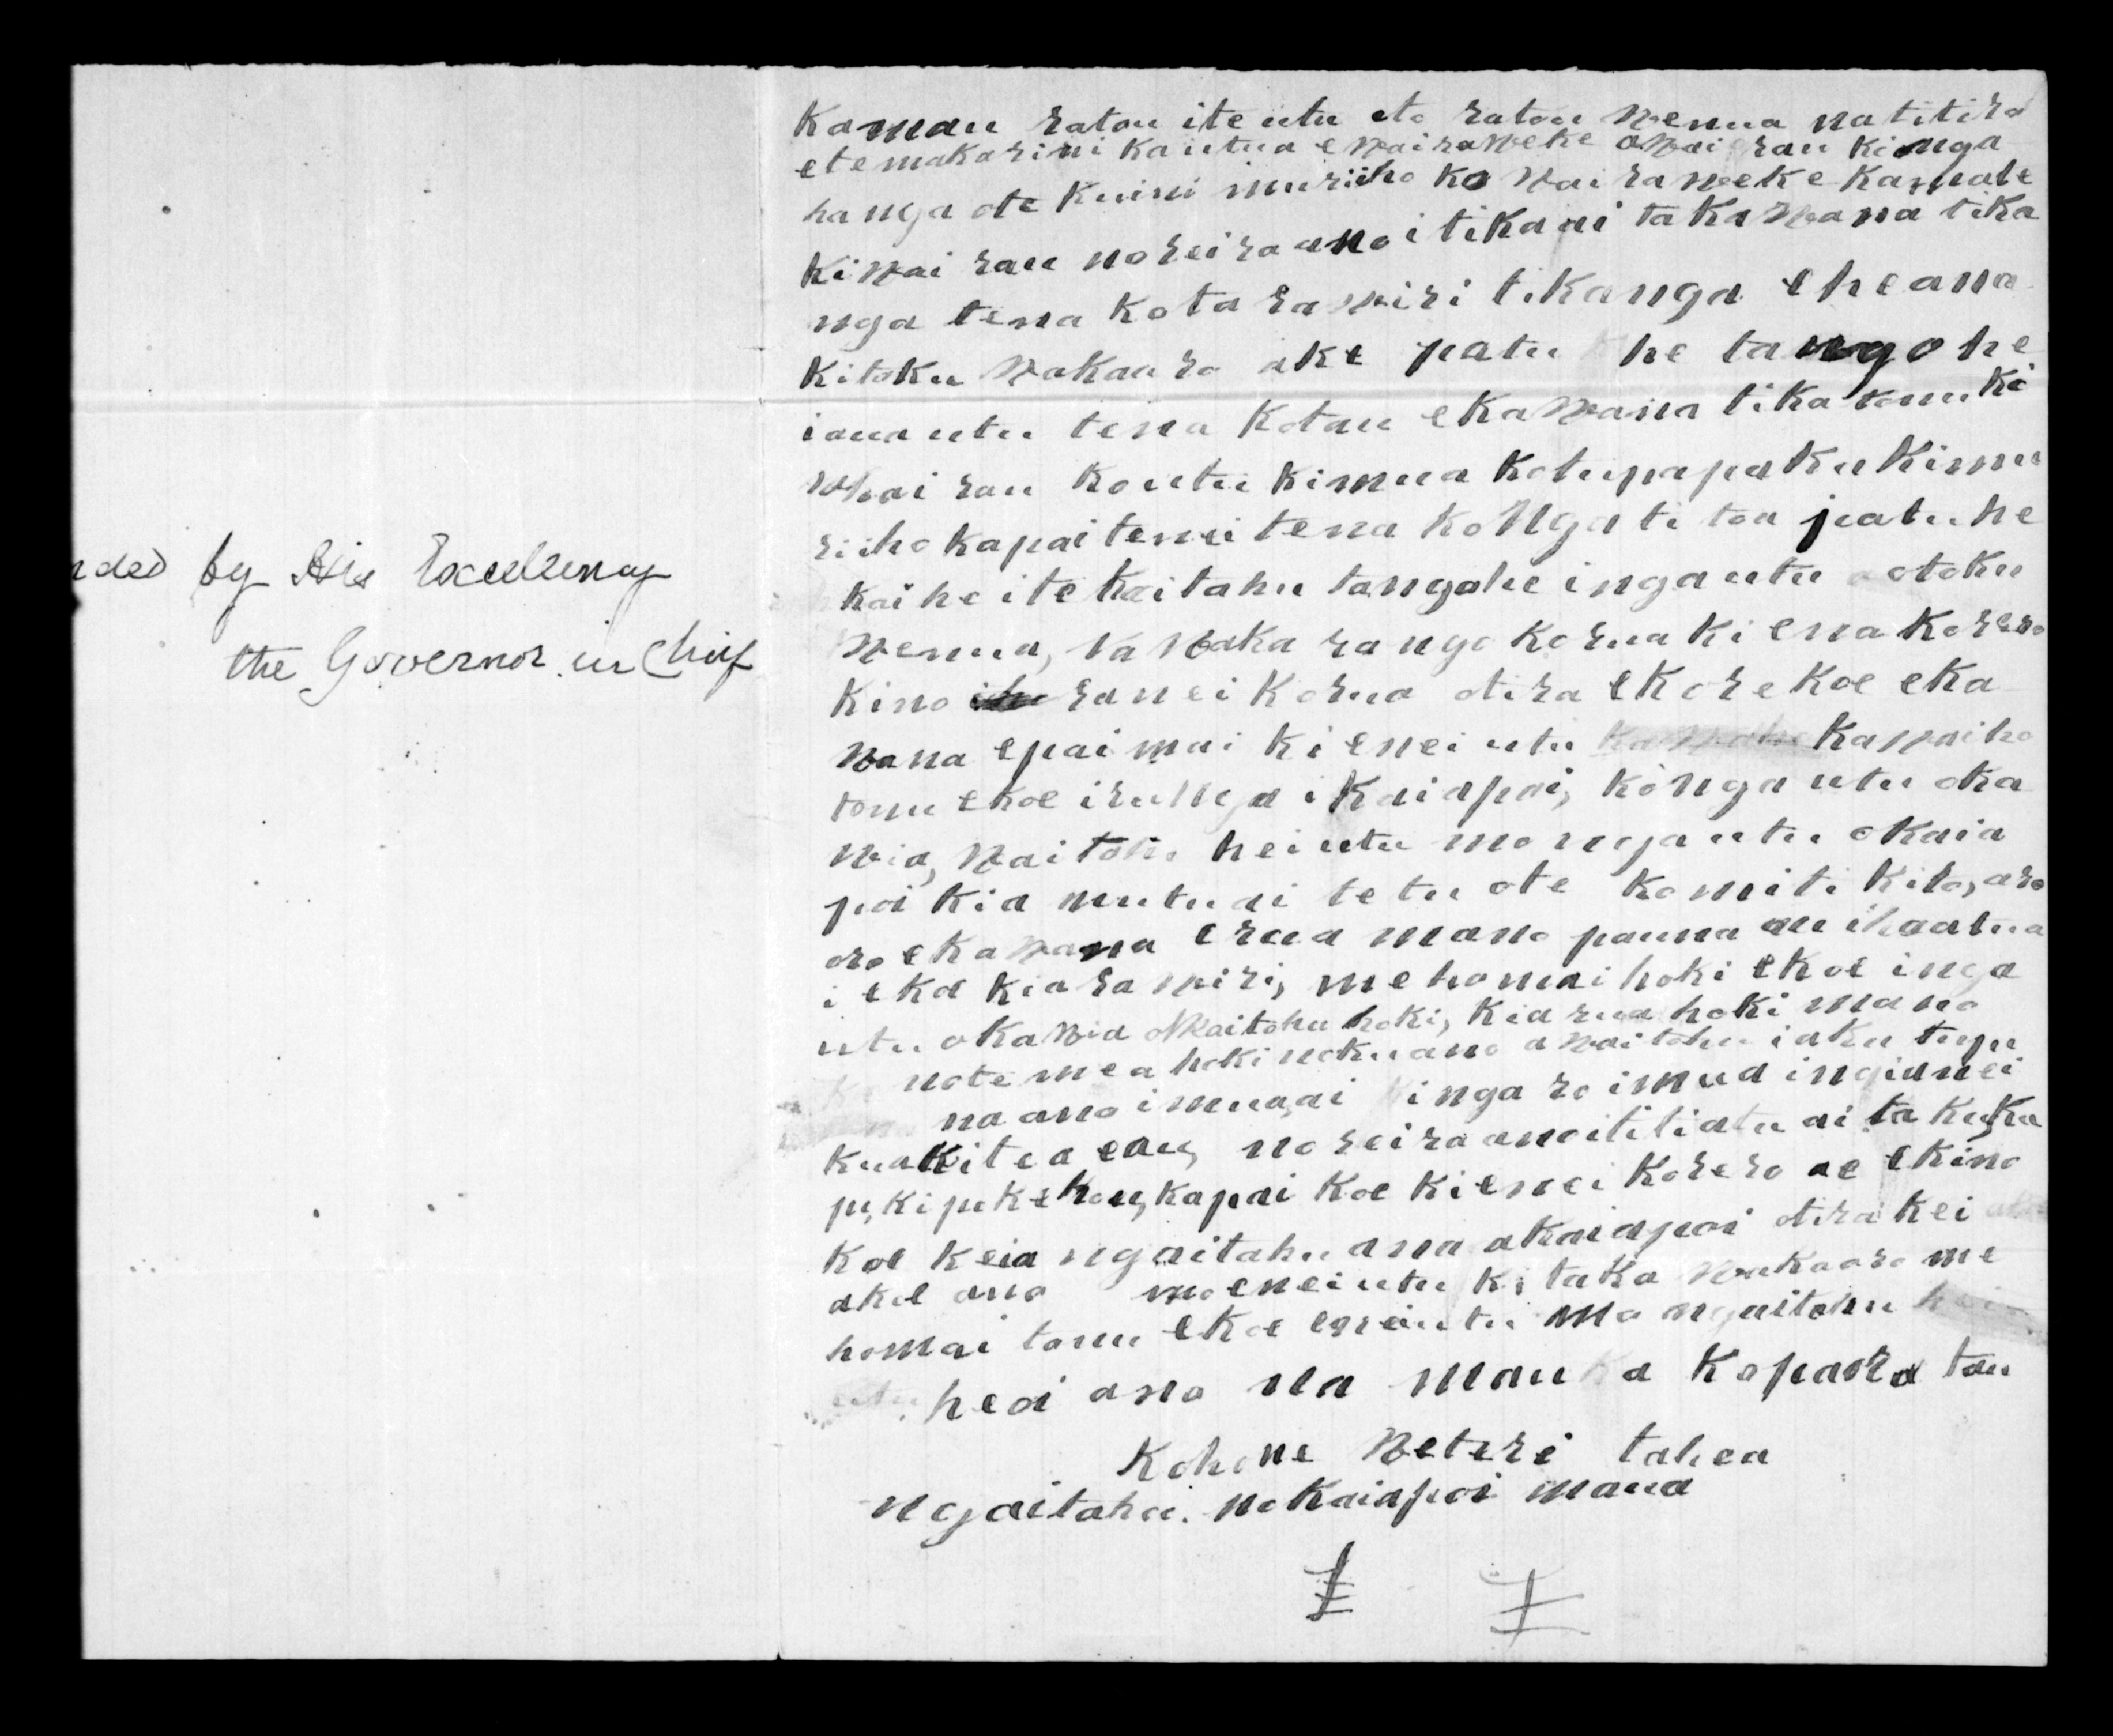 nded by His Excellency
the Governor in Chief
Kamau ratou ite utu oto ratou wenua natitira
etemakarini kautua ewairaweke owairau kionga
hanga ote kuini muriiho ko wairaweke kamate
kiwai rau noreiraano itikaai takawana tika
nga tena kota rawiri tikanga eheana
kitoku wakaaro ake patu he tangohe
iaua utu tena kotau ekawana tika tonu ki
whai rau koutu kimua kotupapaku kimu
riiho kapai tenei tena ko Ngati toa patu he
kaihe ite kaitahu tangohe inga utu otoku
wenua, Va waka rango korua ki ena korero
kino ranei korua otira ekore koe eka
wana epai mai ki enei utu kawaiho
tonu ekoe irunga ikaiapoi, konga utu oka
wia, waitohi hei utu mo nga utu okaia
poi kia mutu ai te tu ote komiti kito, aro
aro ekawana erua mano pauna au ikaatua
i ekoe kia rawiri, me homai hoki ekoe inga
utu okawia owaitohu hoki, kia rua hoki mano
note mea hoki nokuano awaitohu iaku tupu
na ano imua, ai inga ro imua ingianei
kuakitea eau, noreira anoititiatu ai takupu
pu, ki puke kou, kapai koe kienei korero ae ekino
koe keia ngaitahu ana akaiapoi otira kei
akoe ano mo enei utu ki taka wakaaro me
homai tonu ekoe enei utu ma ngaitahu
heoi ano na mau a koparatau
Kohone Weteri tahea
ngaitahu. nokaiapoi maua